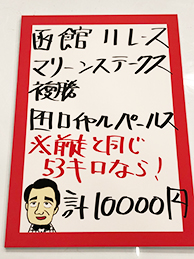 函館11レース
マリーンステークス
複勝
⑪ロイヤルパールス
※前走と同じ
53キロなら！
計10000円